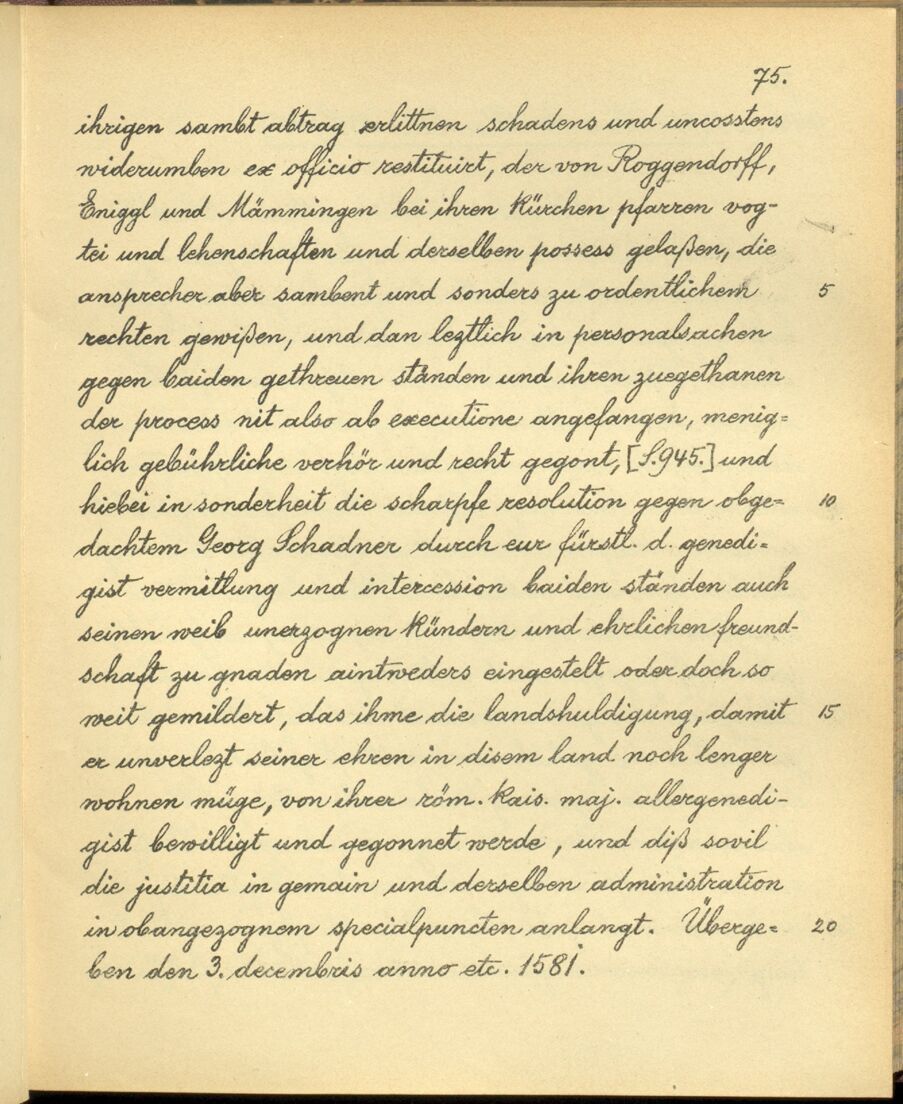 75.
ihrigen sambt abtrag erlittnen schadens und uncosstens
widerumben ex officio restituirt, der von Roggendorff,
Eniggl und Mämmingen bei ihren kürchen pfarren vog-
tei und lehenschaften und derselben possess gelaßen, die
ansprecher aber sambent und sonders zu ordentlichem 5
rechten gewißen, und dan leztlich in personalsachen
gegen baiden gethreuen ständen und ihren zuegethanen
der process nit also ab executione angefangen, menig=
lich gebührliche verhör und recht gegont, [S.945.] und
hiebei in sonderheit die scharpfe resolution gegen obge= 10
dachtem Georg Schadner durch eur fürstl. d. genedi=
gist vermitlung und intercession baiden ständen auch
seinen weib unerzognen kündern und ehrlichen freund-
schaft zu gnaden aintweders eingestelt oder doch so
weit gemildert, das ihme die landshuldigung, damit 15
er unverlezt seiner ehren in disem land noch lenger
wohnen müge, von ihrer röm. kais. maj. allergenedi-
gist bewilligt und gegonnet werde, und diß sovil
die justitia in gemain und derselben administration
in obangezognem specialpuncten anlangt. Überge= 20
ben den 3. decembris anno etc. 1581.